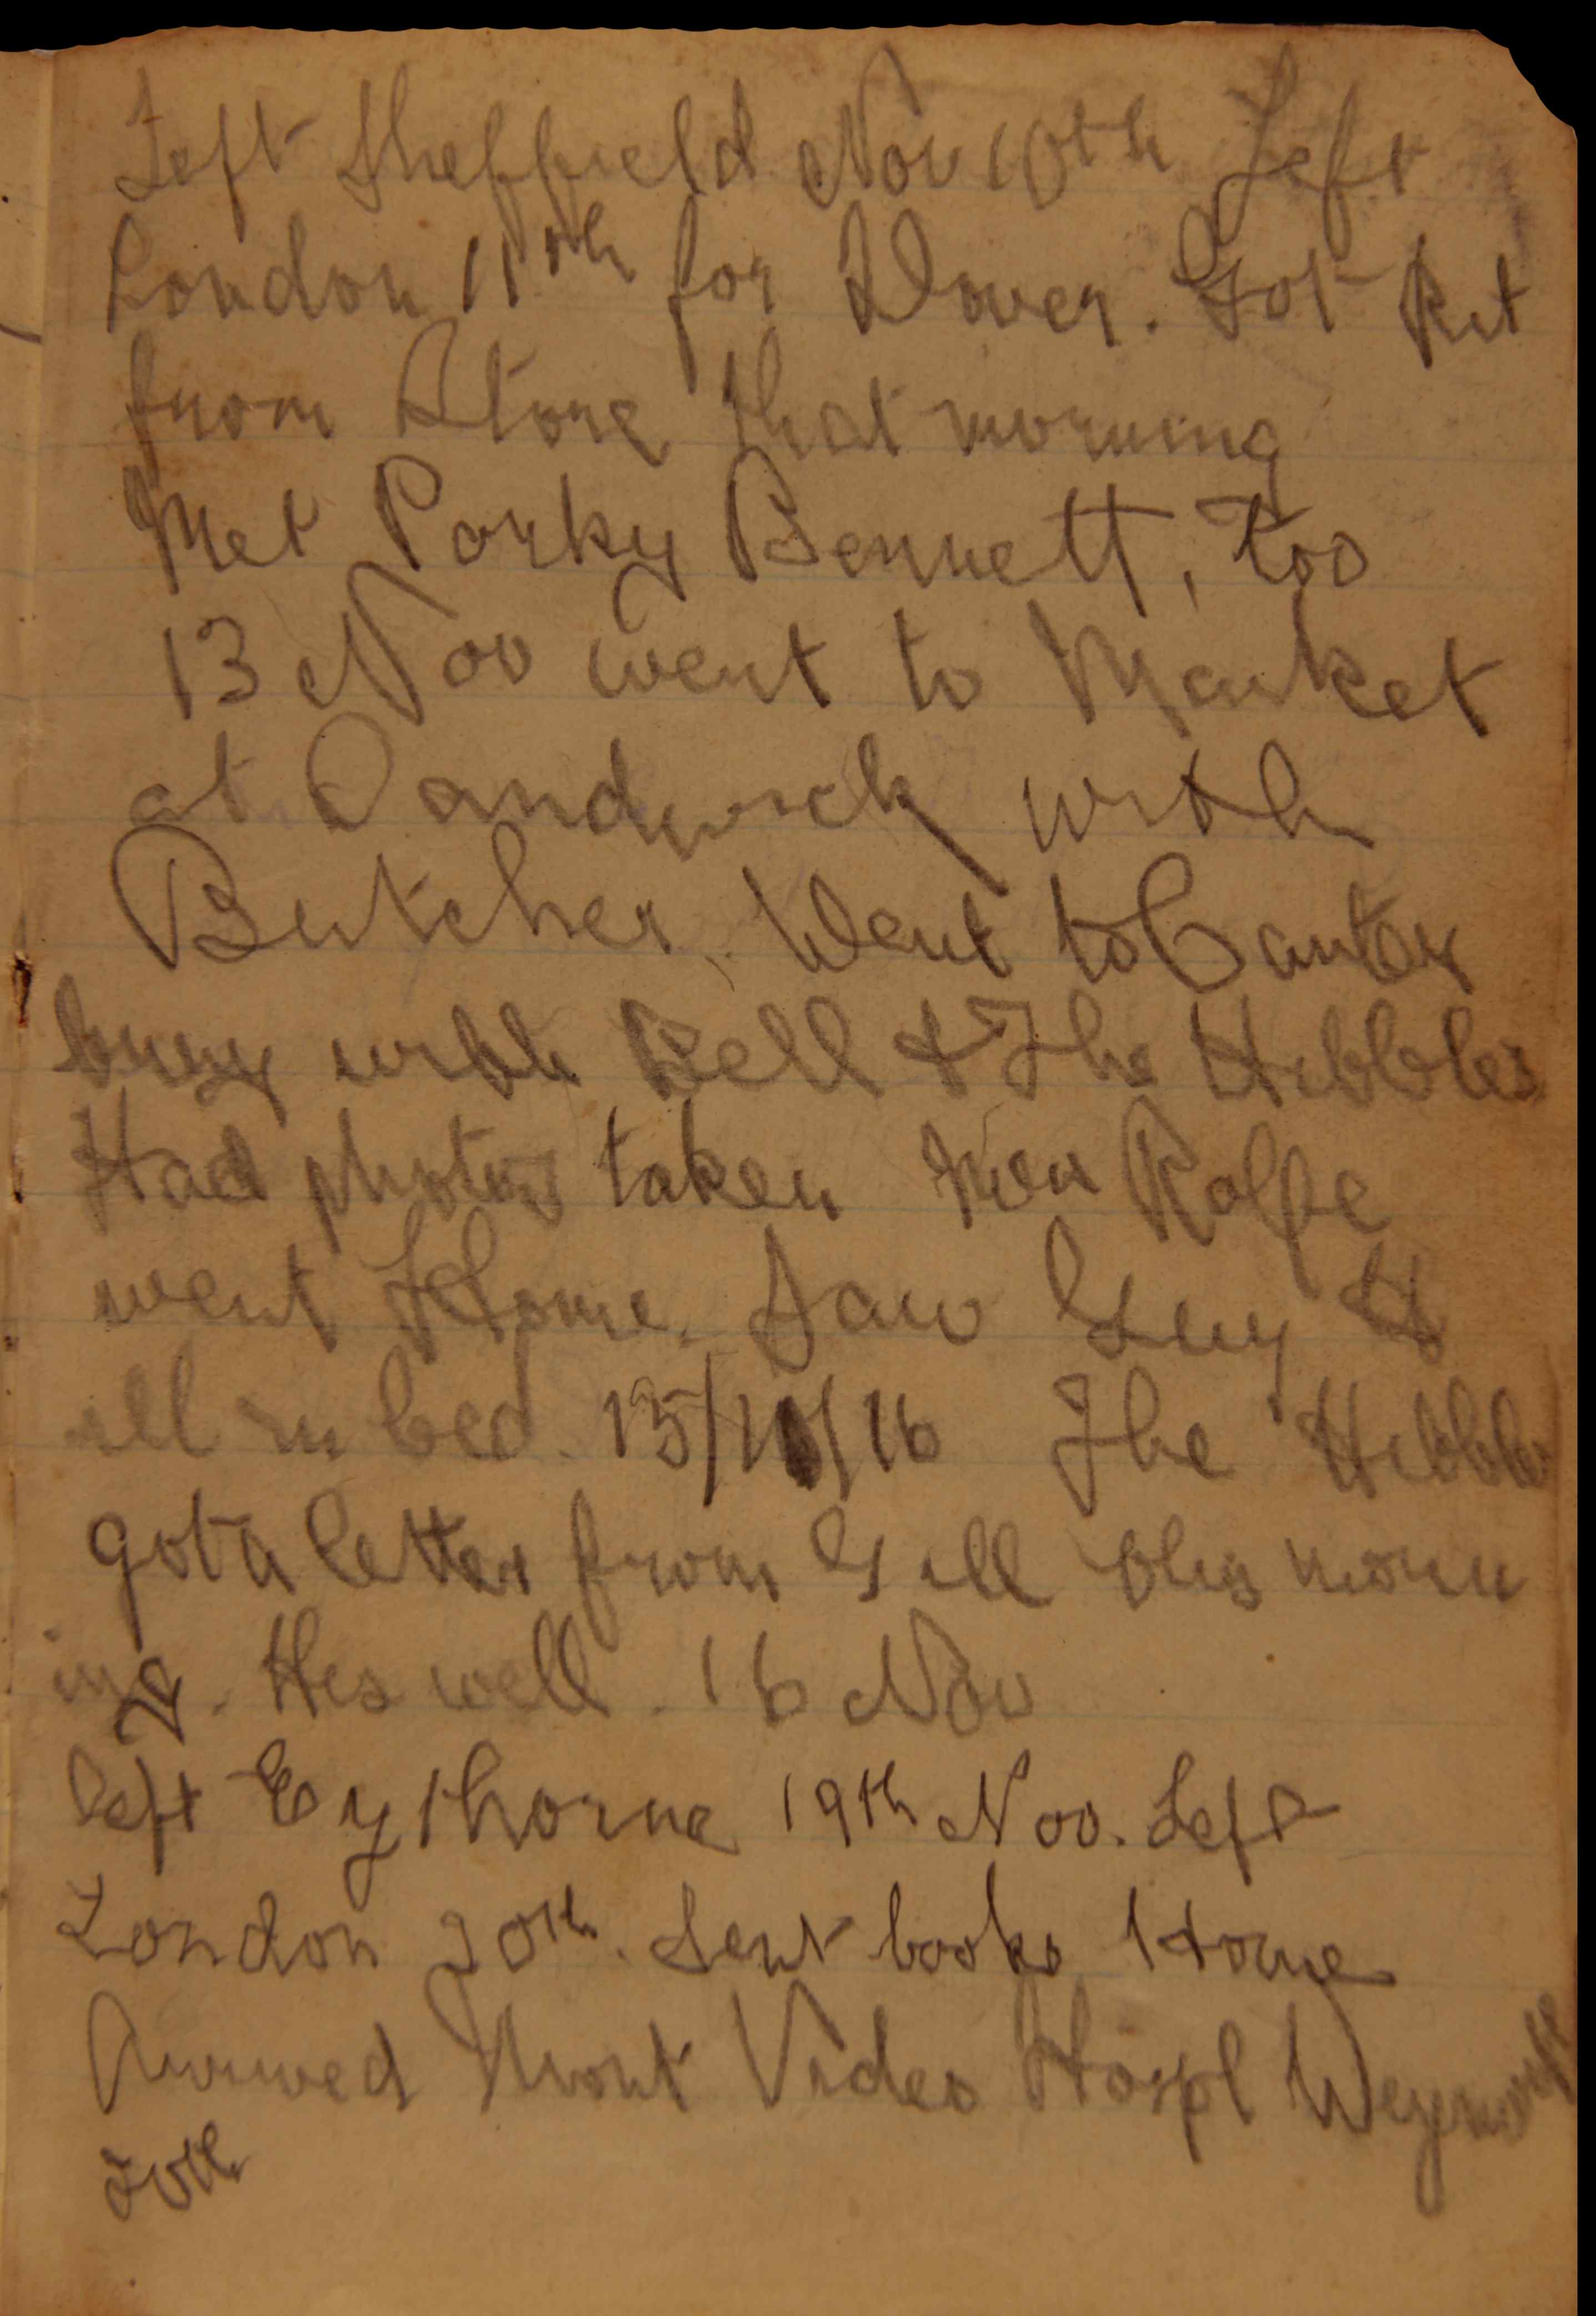 Left Sheffield Nov 10th Left
London 11th for Dover. Got Kit
from Store that morning
Met Porky Bennett, too
13 Nov went to Market
at Sandwich with
Butcher. Went to Canter
bury with Bell & The Hibbles
Had photos taken Rolfe
went Home. Saw Guy
ill in bed. 15/11/16 The Hibble
got a letter from Gill this morn
ing. Hes well. 16 Nov
left Eythorne 19th Nov. Left
London 20th. Sent books Home
Arrived Mont Video Hospl Weymouth
20th